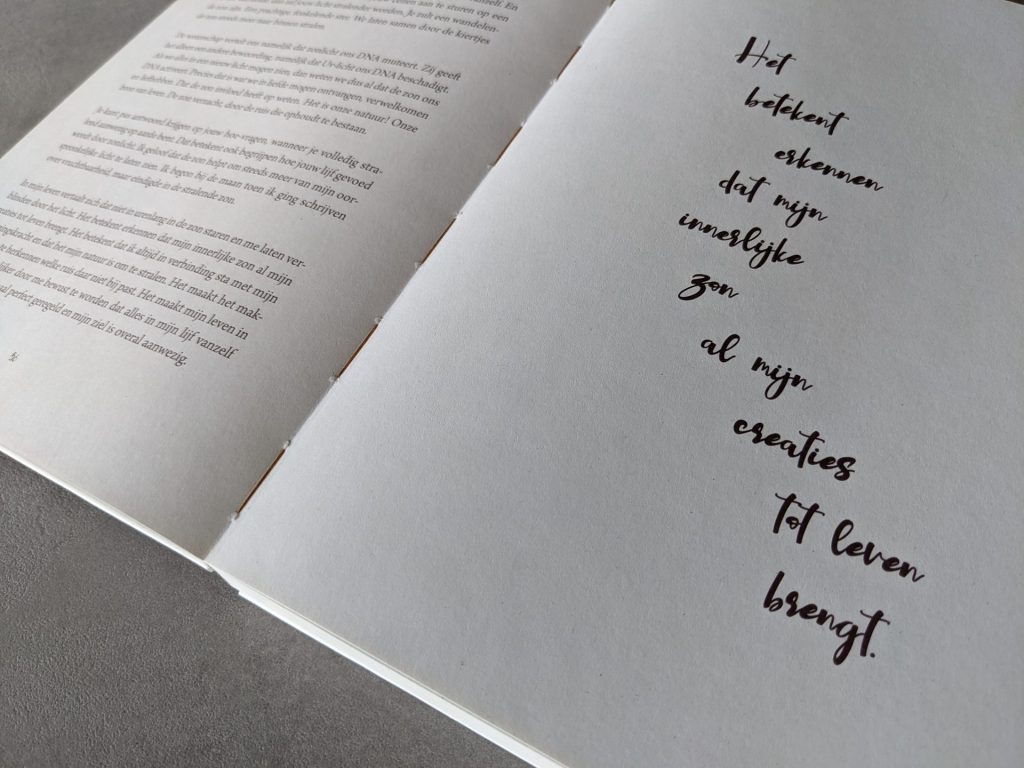 aan te sturen op een
stralender worden. Je zult een wandelen-
de zon zijn. Een stralende ster. We laten samen door de kiertjes
De wetenschap vertelt ons namelijk dat zonlicht ons DNA muteert. Zij geeft
het alleen een andere bewoording, namelijk dat Uv-licht ons DNA beschadigt.
Als we alles in een nieuw licht mogen zien, dan weten we dus al dat de zon ons
DNA activeert. Precies dat is wat we in liefde mogen ontvangen, verwelkomen
en liefhebben. Dat die zon invloed heeft op weten. Het is onze natuur! Onze
bron van leven. De zon verzacht, door de ruis die ophoudt te bestaan.
Je kunt pas antwoord krijgen, op jouw hoe-vragen, wanneer je volledig stra-
lend aanwezig op aarde bent. Dat betekent ook begrijpen hoe jouw lijf gevoed
wordt door zonlicht. Ik geloof dat de zon helpt om steeds meer van mijn oor-
spronkelijke licht te laten zien. Ik begon bij de maan toen ik ging schrijven
over vruchtbaarheid, maar eindigde in de stralende zon.
In mijn leven vertaalt zich dat niet in urenlang in de zon staren en me laten ver-
blinden door het licht. Het betekent erkennen dat mijn innerlijke zon al mijn
creaties tot leven brengt. Het betekent dat ik altijd in verbinding sta met mijn
en dat het mijn natuur is om te stralen. Het maakt het mak-
te herkennen welke ruis daar niet bij past. Het maakt mijn leven in
door me bewust te worden dat alles in mijn lijf vanzelf
perfect geregeld en mijn ziel is overal aanwezig.
Het
betekent
erkennen
dat mijn
innerlijke
zon
al mijn
creaties
tot leven
brengt.